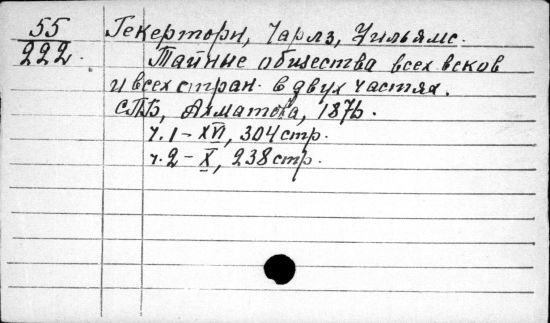 55
222.
Гекерторн, Чарлз, Уильямс.
Тайные общества всех веков
и всех стран. в двух частях.
СПБ, Ахматова, 1876.
ч. 1 - XVI, 304 стр.
ч. 2 - X, 238 стр.